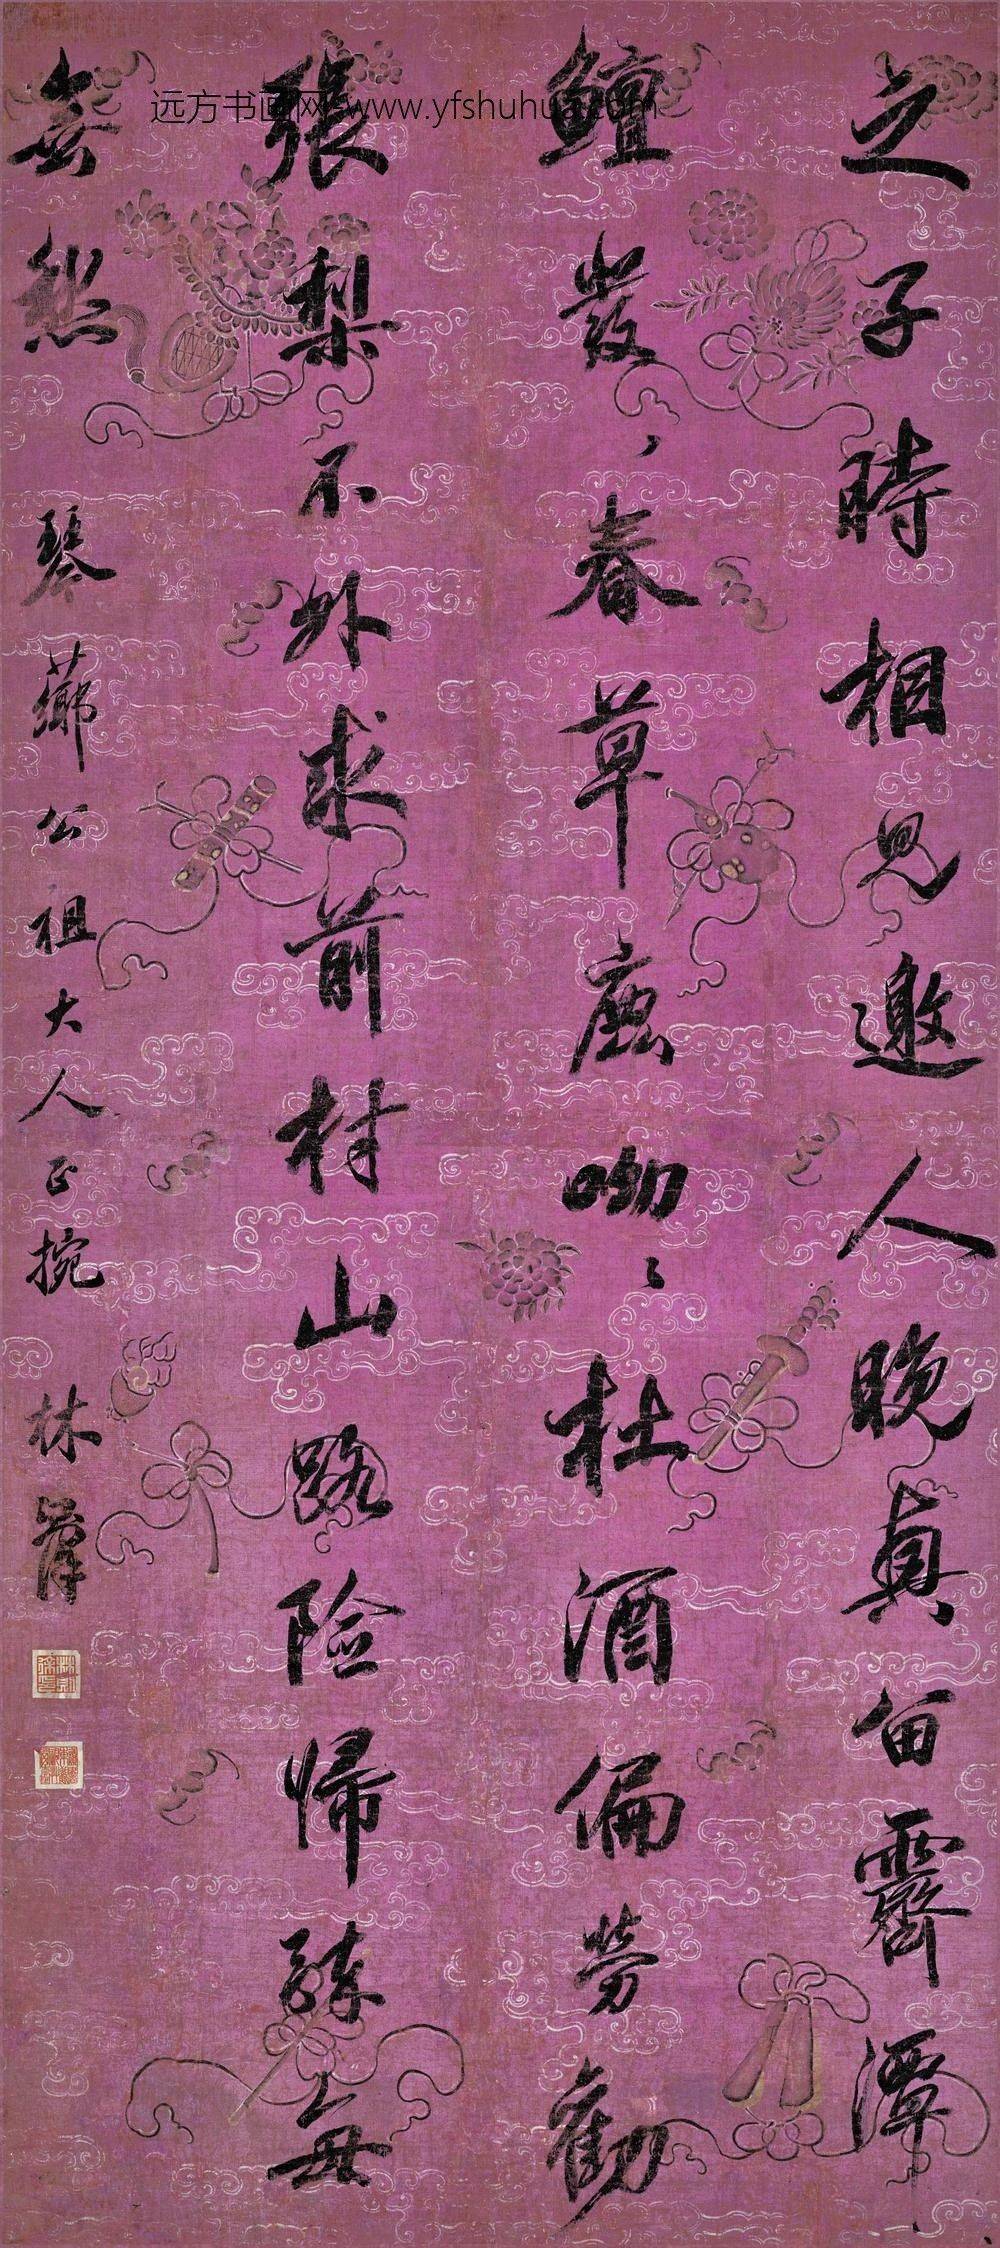 远方书画网-www.yfshuhua.com
之子時相見邀人晚興留霽潭
鱣發、春草鹿呦、杜酒偏勞勸
張梨不外求前村山路險歸醉每
無愁
琴薌公祖大人正捥 林